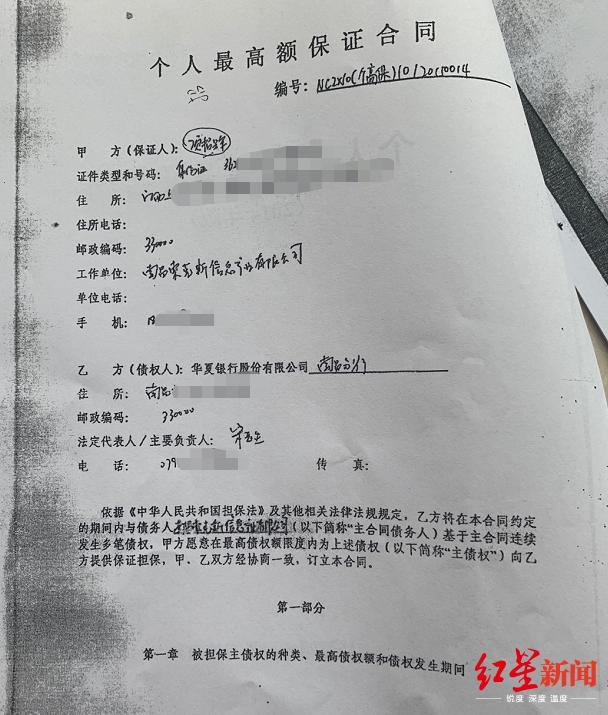 个人最高额保证合同
编号:
甲 方(保证人):
证件类型和号码: 身份证 362
住 所: 江西
住所电话:
邮政编码: 330000
工作单位: 南昌 信息产业有限公司
单位电话:
手 机:
乙 方(债权人):华夏银行股份有限公司 南昌分行
住 所: 南昌
邮政编码: 330000
法定代表人/主要负责人:
电 话: 079 传 真:
依据《中华人民共和国担保法》及其他相关法律法规规定,乙方将在本合同约定
的期间内与债务人 (以下简称“主合同债务人)基于主合同连续
发生多笔债权,甲方愿意在最高债权额限度内为上述债权(以下简称“主债权”)向乙
方提供保证担保,甲、乙双方经协商一致,订立本合同。
第一部分
第一章 被担保主债权的种类、最高债权额和债权发生期间
红星新闻
锐度 深度 温度